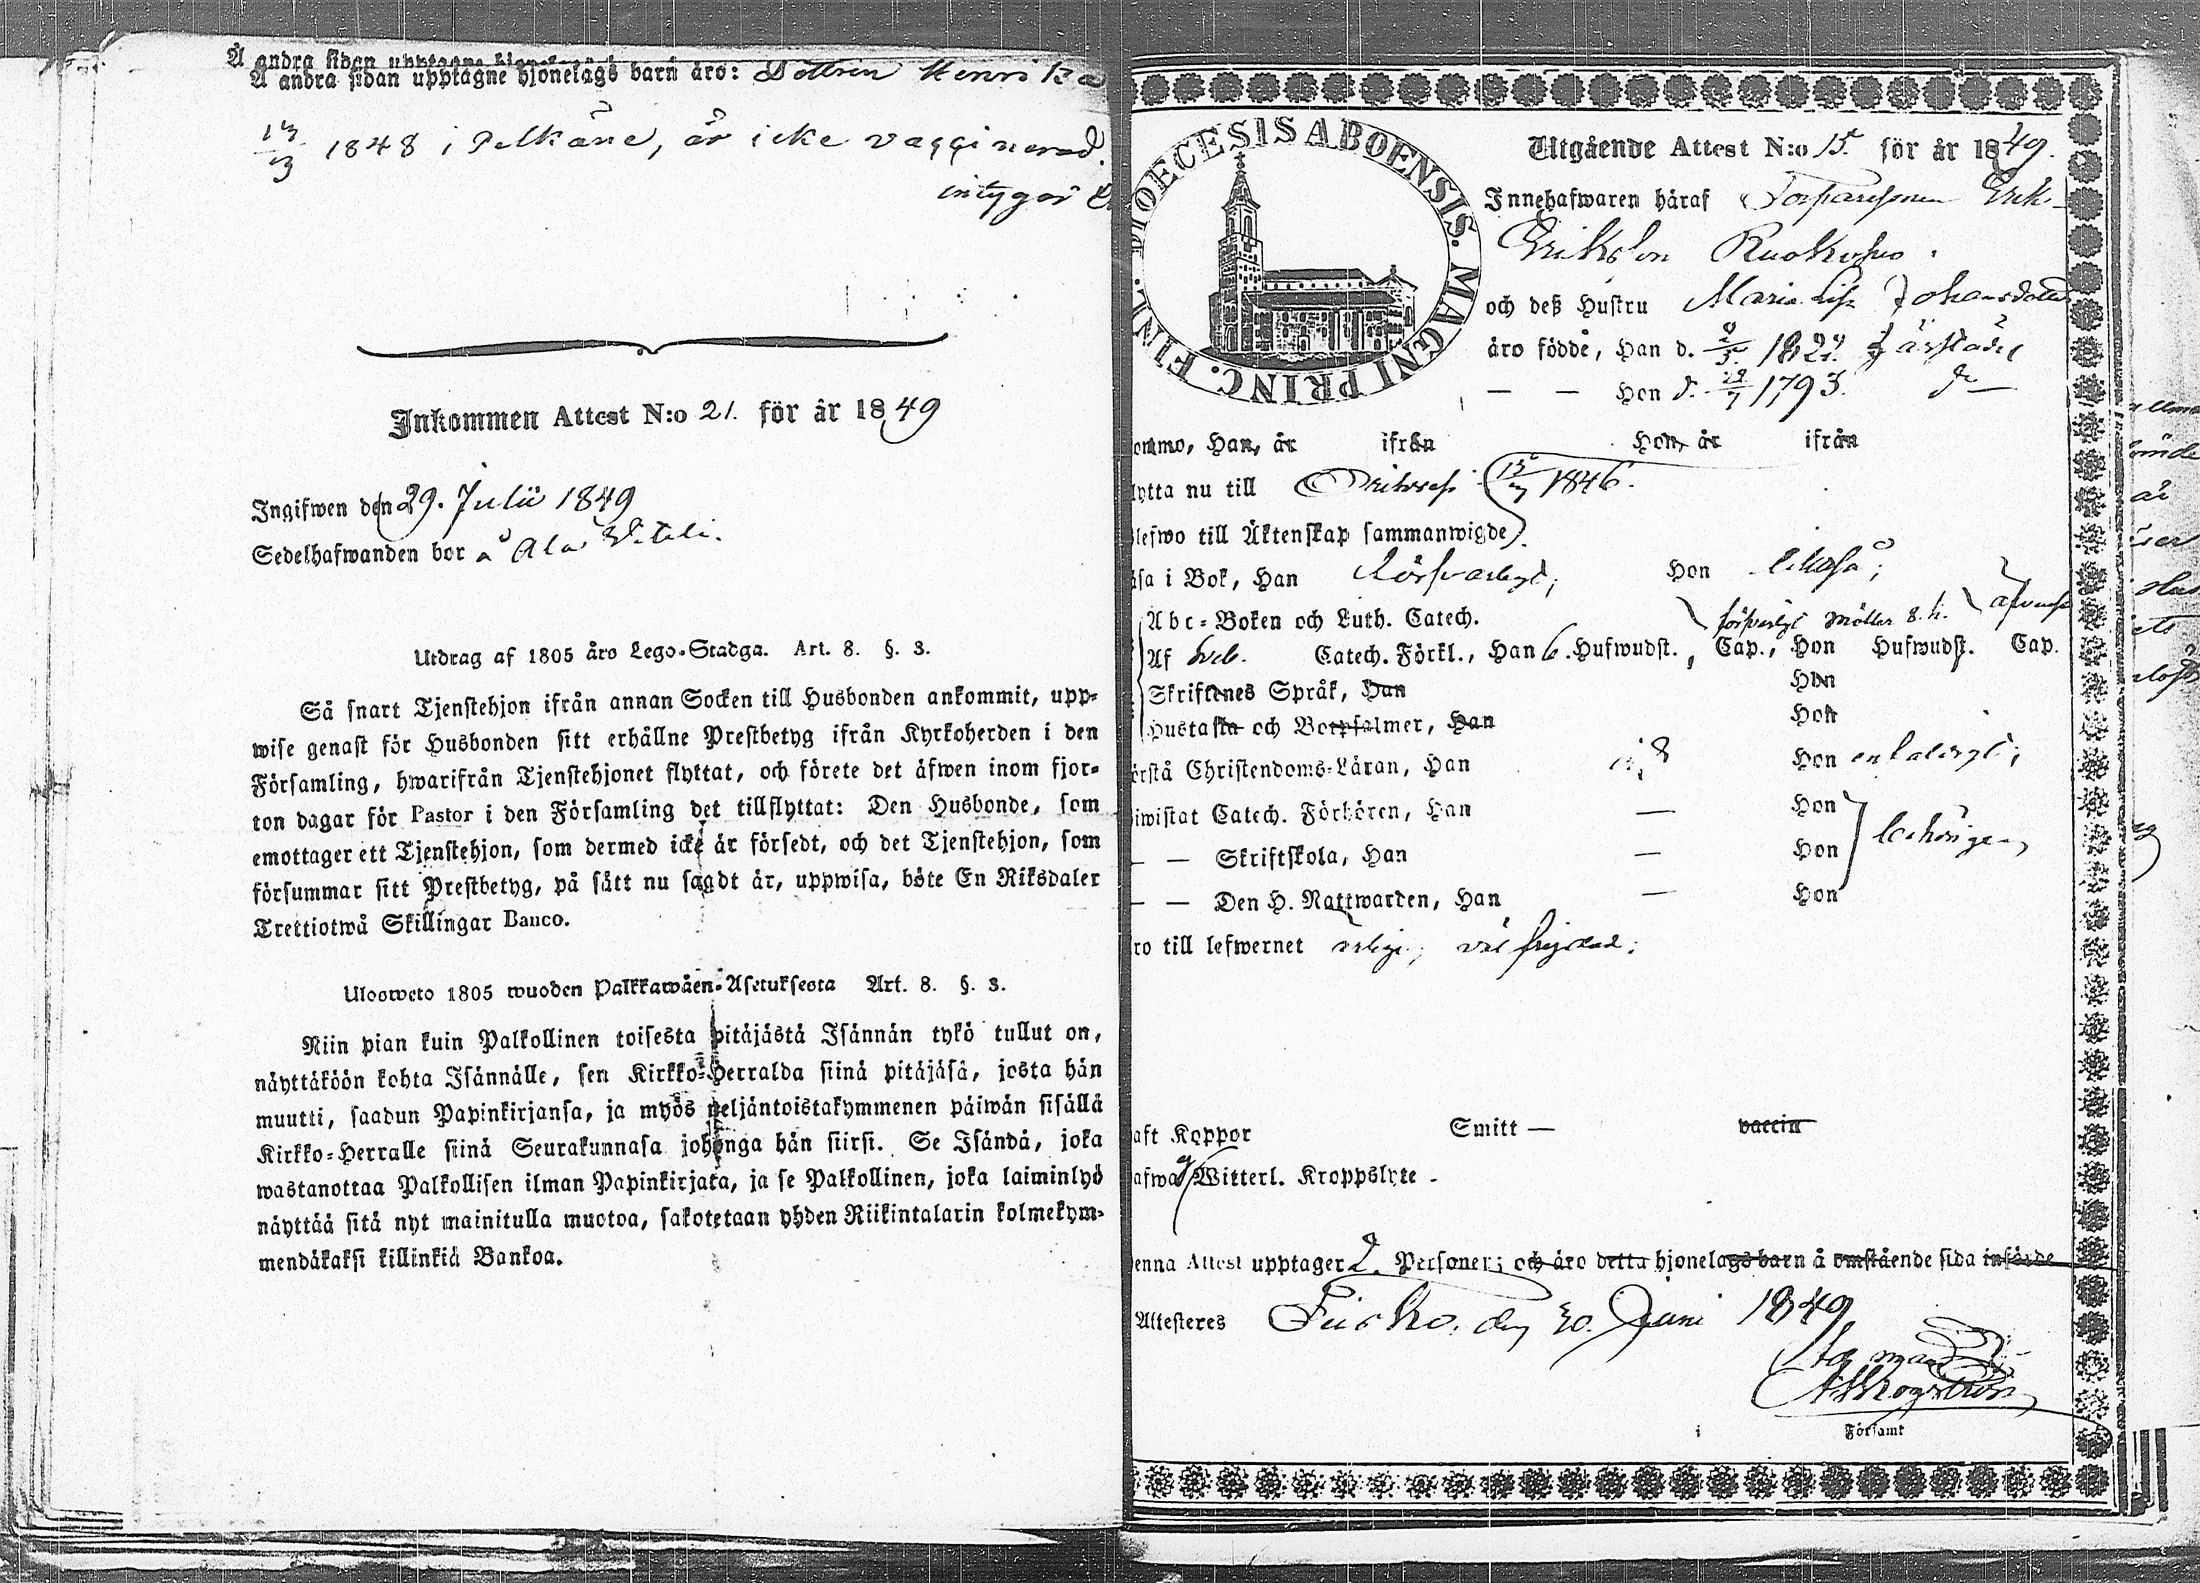 Å andra sidan upptagne hjonelags
Å andra sidan upptagne hjonelags barn äro: Dottren Henrika
13/3 1848 i Pelkäne, är icke vaccinerad.
intygar
Inkommen Attest N:o 21. för år 1849
Ingifwen den 29. Julii 1849
Sedelhafwanden bor å Ala
Utdrag af 1805 åro Lego-Stadga. Art. 8. §. 3.
Så snart Tjenstehjon ifrån annan Socken till Husbonden ankommit, upp-
wise genast för Husbonden sitt erhållne Prestbetyg ifrån Kyrkoherden i den
Församling, hwarifrån Tjenstehjonet flyttat, och förete det äfwen inom fjor-
ton dagar för Pastor i den Församling det tillflyttat: Den Husbonde, som
emottager ett Tjenstehjon, som dermed icke är försedt, och det Tjenstehjon, som
försummar sitt Prestbetyg, på sätt nu sagdt är, uppwisa, böte En Riksdaler
Trettiotwå Skillingar Banco.
Ulosweto 1805 wuoden Palkkawäen-Asetuksesta Art. 8. §. 3.
Niin pian kuin Palkollinen toisesta pitäjästä Isännän tykö tullut on,
näyttäköön kohta Isännälle, sen Kirkko-Herralda siinä pitäjäsä, josta hän
muutti, saadun Papinkirjansa, ja myös neljäntoistakymmenen päiwän sisällä
Kirkko-Herralle siinä Seurakunnasa johonga hän siirsi. Se Isändä, joka
wastanottaa Palkollisen ilman Papinkirjata, ja se Palkollinen, joka laiminlyö
näyttää sitä nyt mainitulla muotoa, sakotetaan yhden Riikintalarin kolmekym-
mendäkaksi killinkiä Bankoa.
DIOECESIS ABOENSIS. MAGNI PRINC. FINL.
Utgående Attest N:o 15. för år 1849.
Innehafwaren häraf Torparesonen Erik
Eriksson
och deß Hustru Maria Lisa Johansdotter
äro födde, Han d. 1822. härstädes
— — Hon d. 1793. do
ommo, Han, är ifrån Hon, är ifrån
lytta nu till 1846.
lefwo till Äktenskap sammanwigde
äsa i Bok, Han försvarligt; Hon likaså;
Abc-Boken och Luth. Catech.
försvarligt
Af Catech. Förkl., Han 6. Hufwudst., Cap., Hon Hufwudst. Cap.
Skriftenes Språk, Han Hon
Hustafln och Botpsalmer, Han Hon
örstå Christendoms-Läran, Han Hon enfaldigt;
iwistat Catech. Förhören, Han — Hon
— — Skriftskola, Han — Hon
behörigen,
— — Den H. Nattwarden, Han — Hon
ro till lefwernet ärlige, väl frejdade;
aft Koppor Smitt — vaccin
afwa Witterl. Kroppslyte -
enna Attest upptager 2. Personer; och äro detta hjonelags barn å omstående sida införde
Attesteres den 30. Juni 1849
i Församl